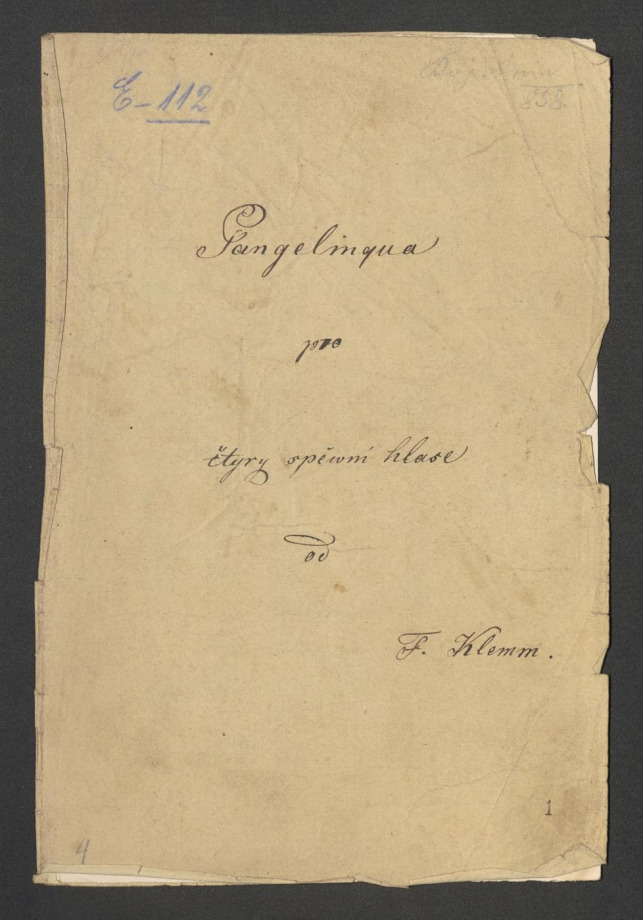 E-112
858.
Pangelinqua
pro
čtyry spěwní hlase
od
F. Klemm.
1
4